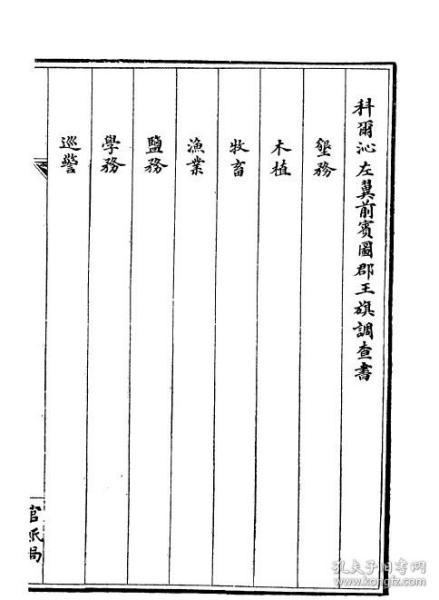 科爾沁左翼前賓圖郡王旗調查書
墾務
木植
牧畜
漁業
鹽務
學務
巡警
官紙局
孔夫子旧书网
www.kongfz.com